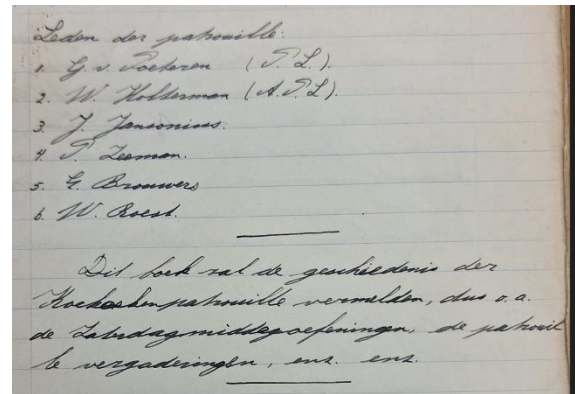 Leden der patrouille:
1. G. v. Poeteren (P.L.).
2. W. Holterman (A.P.L).
3. J. Jansonius.
4. P. Zeeman.
5. G. Brouwers
6. W. Roest.
Dit boek zal de geschiedenis der
Koekoekenpatrouille vermelden, dus o.a.
de Zaterdagmiddagoefeningen, de patrouil
le vergaderingen, enz. enz.